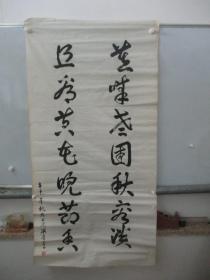 莫嫌老圃秋容淡
且看黄花晚節香